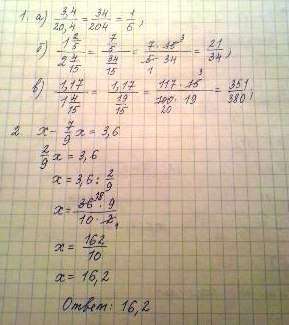 1. а) 3,4/20,4 = 34/204 = 1/6;
б) 1 2/5 / 2 4/15 = 7/5 / 34/15 = 7·15 3/5·34 1 = 21/34;
в) 1,17 / 1 4/15 = 1,17 / 19/15 = 117·15 3/100·19 20 = 351/380;
2 x - 7/9 x = 3,6
2/9 x = 3,6
x = 3,6 : 2/9
x = 36 18 · 9 / 10 · 2 1
x = 162/10
x = 16,2
Ответ: 16,2